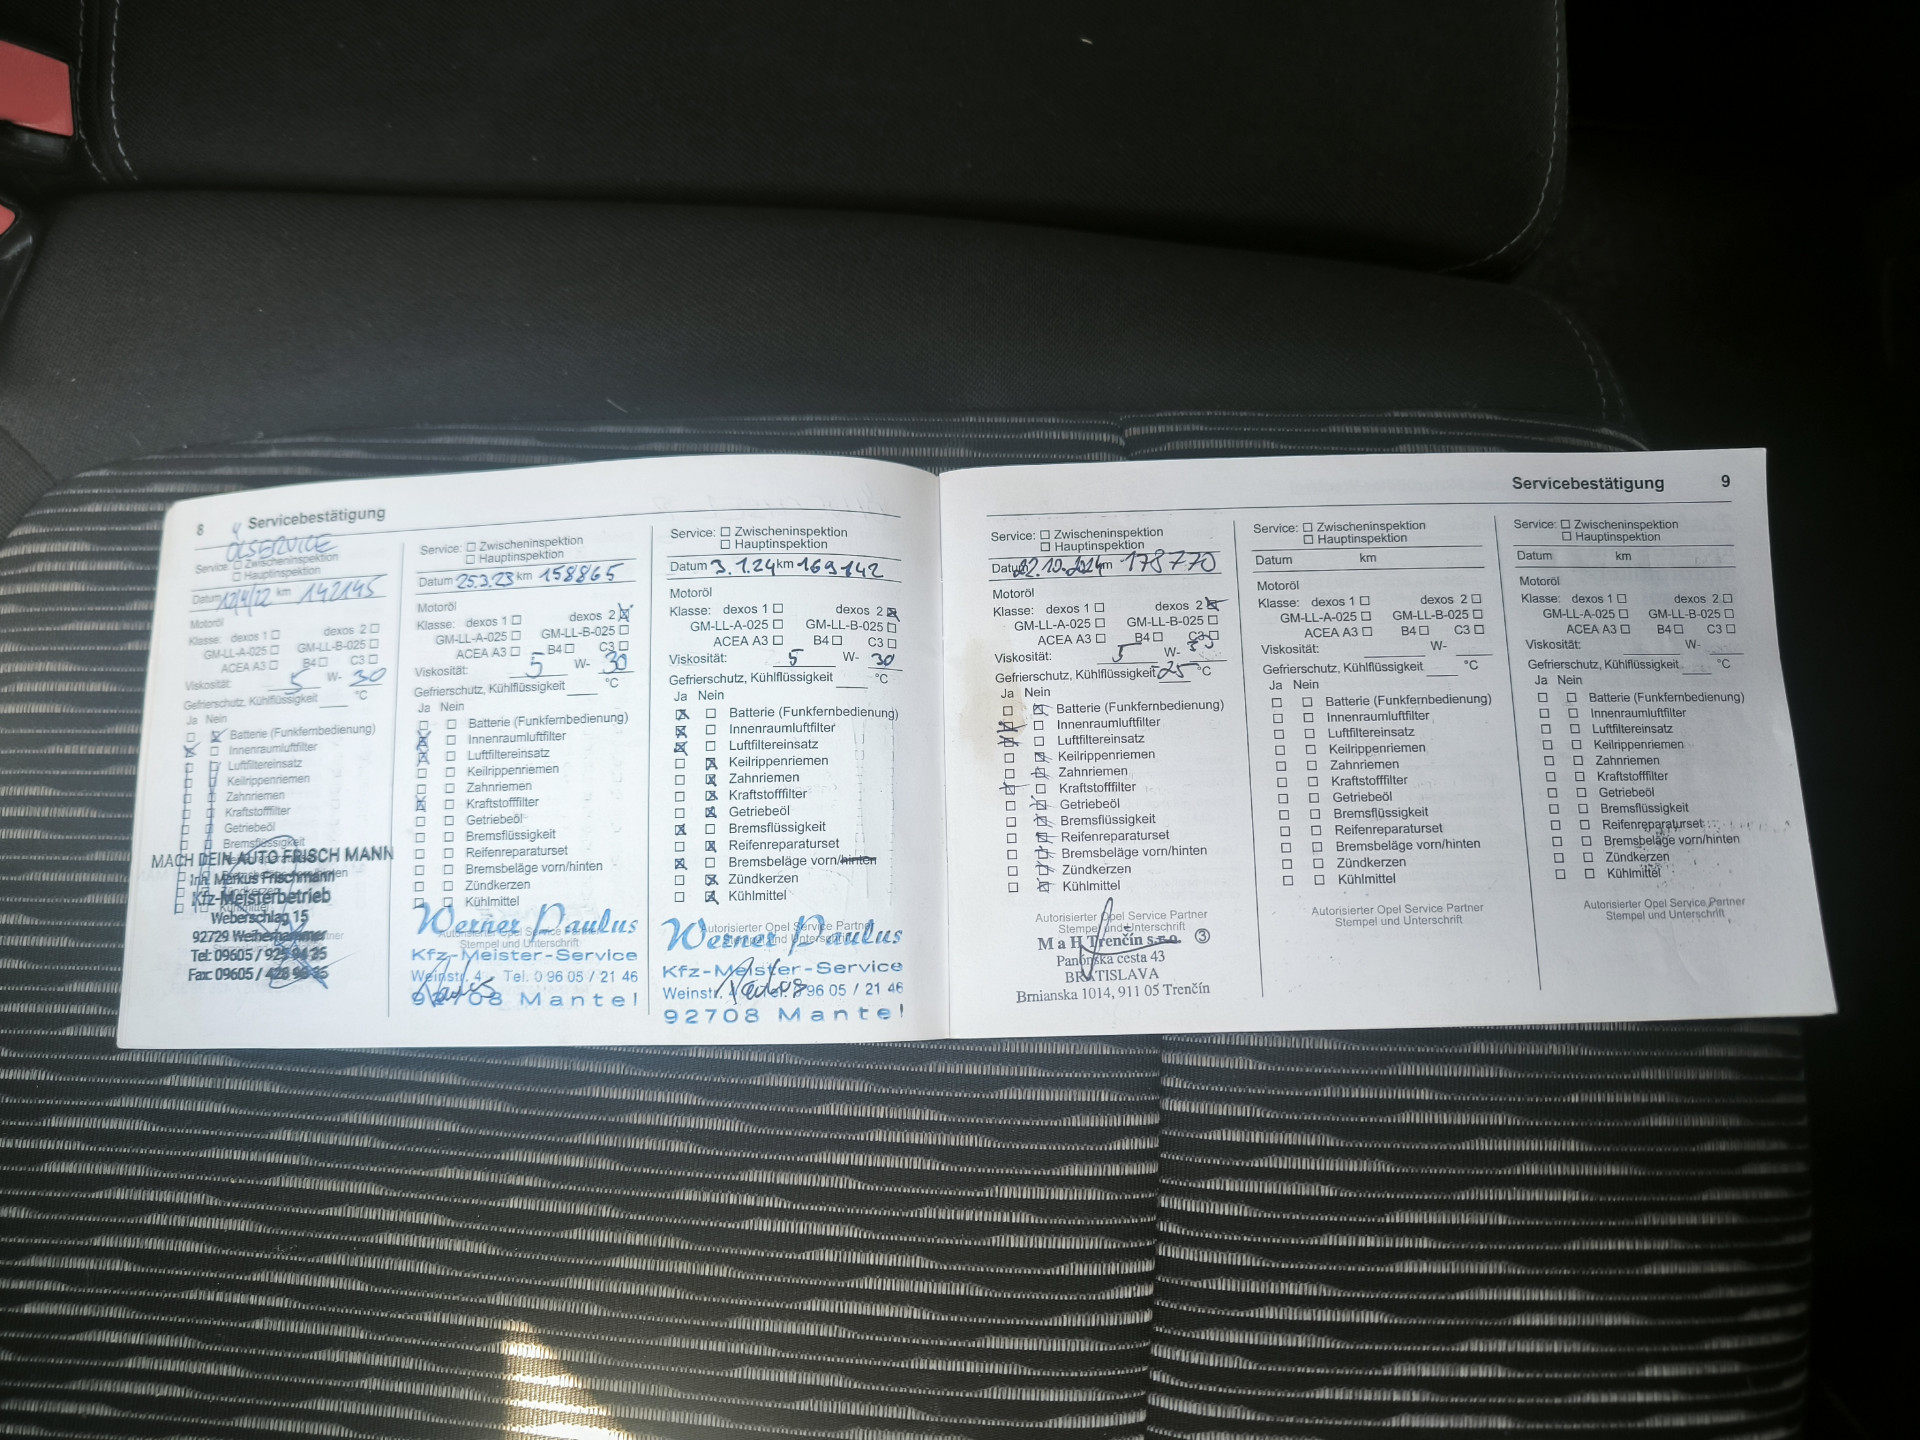 8 Servicebestätigung
ÖLSERVICE
Service: ☐ Zwischeninspektion
☐ Hauptinspektion
Datum 12/4/22 km 142145
Motoröl
Klasse: dexos 1 ☐ dexos 2 ☐
GM-LL-A-025 ☐ GM-LL-B-025 ☐
ACEA A3 ☐ B4 ☐ C3 ☐
Viskosität: 5 W- 30
Gefrierschutz, Kühlflüssigkeit °C
Ja Nein
☐ ☒ Batterie (Funkfernbedienung)
☒ ☐ Innenraumluftfilter
☐ ☐ Luftfiltereinsatz
☐ ☐ Keilrippenriemen
☐ ☐ Zahnriemen
☐ ☐ Kraftstofffilter
☐ ☐ Getriebeöl
☐ ☐ Bremsflüssigkeit
MACH DEIN AUTO FRISCH MANN
Inh. Markus Frischmann
Kfz-Meisterbetrieb
Weberschlag 15
92729 Weiherhammer
Tel: 09605 / 925 94 25
Fax: 09605 /
Service: ☐ Zwischeninspektion
☐ Hauptinspektion
Datum 25.3.23 km 158865
Motoröl
Klasse: dexos 1 ☐ dexos 2 ☒
GM-LL-A-025 ☐ GM-LL-B-025 ☐
ACEA A3 ☐ B4 ☐ C3 ☐
Viskosität: 5 W- 30
Gefrierschutz, Kühlflüssigkeit °C
Ja Nein
☐ ☐ Batterie (Funkfernbedienung)
☒ ☐ Innenraumluftfilter
☒ ☐ Luftfiltereinsatz
☐ ☐ Keilrippenriemen
☐ ☐ Zahnriemen
☒ ☐ Kraftstofffilter
☐ ☐ Getriebeöl
☐ ☐ Bremsflüssigkeit
☐ ☐ Reifenreparaturset
☐ ☐ Bremsbeläge vorn/hinten
☐ ☐ Zündkerzen
☐ ☐ Kühlmittel
Autorisierter Opel Service Partner
Stempel und Unterschrift
Werner Paulus
Kfz-Meister-Service
Weinstr. 4 - Tel. 0 96 05 / 21 46
92708 Mantel
Service: ☐ Zwischeninspektion
☐ Hauptinspektion
Datum 3.1.24 km 169142
Motoröl
Klasse: dexos 1 ☐ dexos 2 ☒
GM-LL-A-025 ☐ GM-LL-B-025 ☐
ACEA A3 ☐ B4 ☐ C3 ☐
Viskosität: 5 W- 30
Gefrierschutz, Kühlflüssigkeit °C
Ja Nein
☒ ☐ Batterie (Funkfernbedienung)
☒ ☐ Innenraumluftfilter
☒ ☐ Luftfiltereinsatz
☐ ☒ Keilrippenriemen
☐ ☒ Zahnriemen
☐ ☒ Kraftstofffilter
☐ ☒ Getriebeöl
☒ ☐ Bremsflüssigkeit
☐ ☒ Reifenreparaturset
☒ ☐ Bremsbeläge vorn/hinten
☐ ☒ Zündkerzen
☐ ☒ Kühlmittel
Autorisierter Opel Service Partner
Stempel und Unterschrift
Werner Paulus
Kfz-Meister-Service
Weinstr. 4 Tel. 0 96 05 / 21 46
92708 Mantel
Servicebestätigung 9
Service: ☐ Zwischeninspektion
☐ Hauptinspektion
Datum 22.10.2024 km 178770
Motoröl
Klasse: dexos 1 ☐ dexos 2 ☒
GM-LL-A-025 ☐ GM-LL-B-025 ☐
ACEA A3 ☐ B4 ☐ C3 ☐
Viskosität: 5 W- 30
Gefrierschutz, Kühlflüssigkeit -25 °C
Ja Nein
☐ ☒ Batterie (Funkfernbedienung)
☒ ☐ Innenraumluftfilter
☒ ☐ Luftfiltereinsatz
☐ ☒ Keilrippenriemen
☐ ☒ Zahnriemen
☒ ☐ Kraftstofffilter
☐ ☒ Getriebeöl
☐ ☒ Bremsflüssigkeit
☐ ☒ Reifenreparaturset
☐ ☒ Bremsbeläge vorn/hinten
☐ ☒ Zündkerzen
☐ ☒ Kühlmittel
Autorisierter Opel Service Partner
Stempel und Unterschrift
M a H Trenčín s.r.o. ③
Panónska cesta 43
BRATISLAVA
Brnianska 1014, 911 05 Trenčín
Service: ☐ Zwischeninspektion
☐ Hauptinspektion
Datum km
Motoröl
Klasse: dexos 1 ☐ dexos 2 ☐
GM-LL-A-025 ☐ GM-LL-B-025 ☐
ACEA A3 ☐ B4 ☐ C3 ☐
Viskosität: W-
Gefrierschutz, Kühlflüssigkeit °C
Ja Nein
☐ ☐ Batterie (Funkfernbedienung)
☐ ☐ Innenraumluftfilter
☐ ☐ Luftfiltereinsatz
☐ ☐ Keilrippenriemen
☐ ☐ Zahnriemen
☐ ☐ Kraftstofffilter
☐ ☐ Getriebeöl
☐ ☐ Bremsflüssigkeit
☐ ☐ Reifenreparaturset
☐ ☐ Bremsbeläge vorn/hinten
☐ ☐ Zündkerzen
☐ ☐ Kühlmittel
Autorisierter Opel Service Partner
Stempel und Unterschrift
Service: ☐ Zwischeninspektion
☐ Hauptinspektion
Datum km
Motoröl
Klasse: dexos 1 ☐ dexos 2 ☐
GM-LL-A-025 ☐ GM-LL-B-025 ☐
ACEA A3 ☐ B4 ☐ C3 ☐
Viskosität: W-
Gefrierschutz, Kühlflüssigkeit °C
Ja Nein
☐ ☐ Batterie (Funkfernbedienung)
☐ ☐ Innenraumluftfilter
☐ ☐ Luftfiltereinsatz
☐ ☐ Keilrippenriemen
☐ ☐ Zahnriemen
☐ ☐ Kraftstofffilter
☐ ☐ Getriebeöl
☐ ☐ Bremsflüssigkeit
☐ ☐ Reifenreparaturset
☐ ☐ Bremsbeläge vorn/hinten
☐ ☐ Zündkerzen
☐ ☐ Kühlmittel
Autorisierter Opel Service Partner
Stempel und Unterschrift